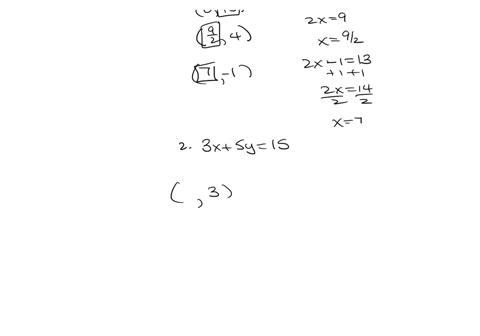 2x=9
(9/2, 4)
x=9/2
2x-1=13
+1 +1
(7, -1)
2x=14
2 2
x=7
2. 3x+5y=15
( , 3)